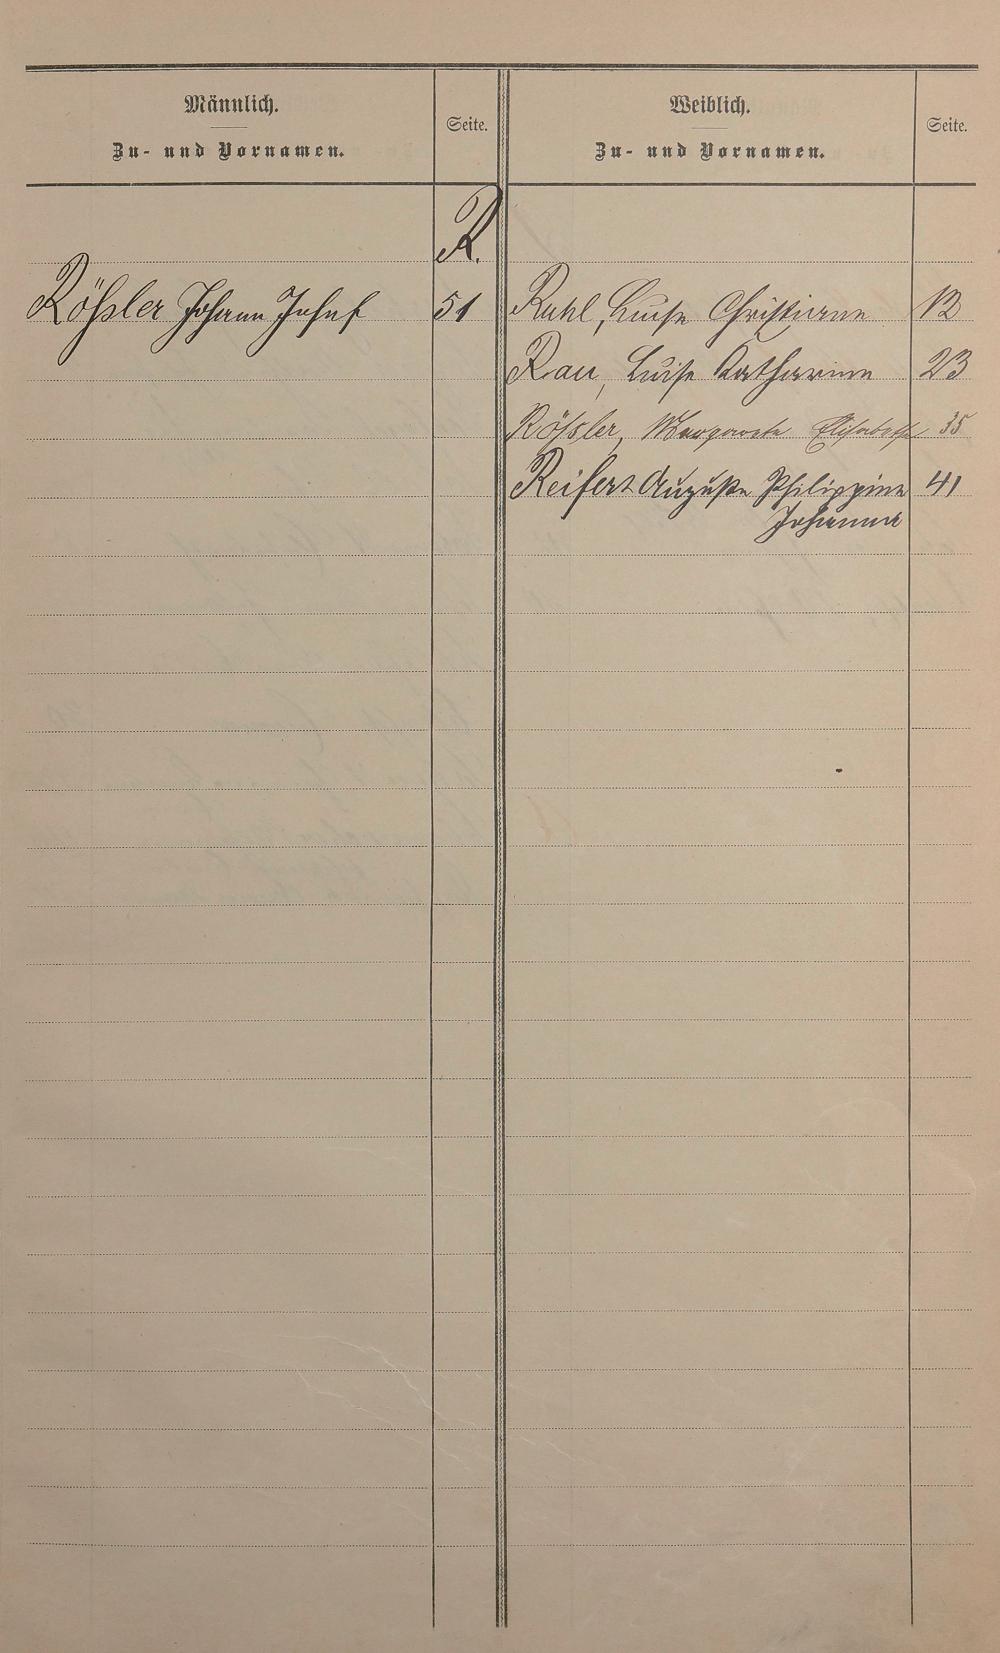 Männlich.
Zu- und Vornamen.
Seite.
Weiblich.
Zu- und Vornamen.
Seite.
R.
Rößler Johann Josef 51
Ruhl, Luise Christiane 12
Rau, Luise Katharine 23
Rößler, Margareta Elisabetha 35
Reifert Auguste Philippine 41
Johanna